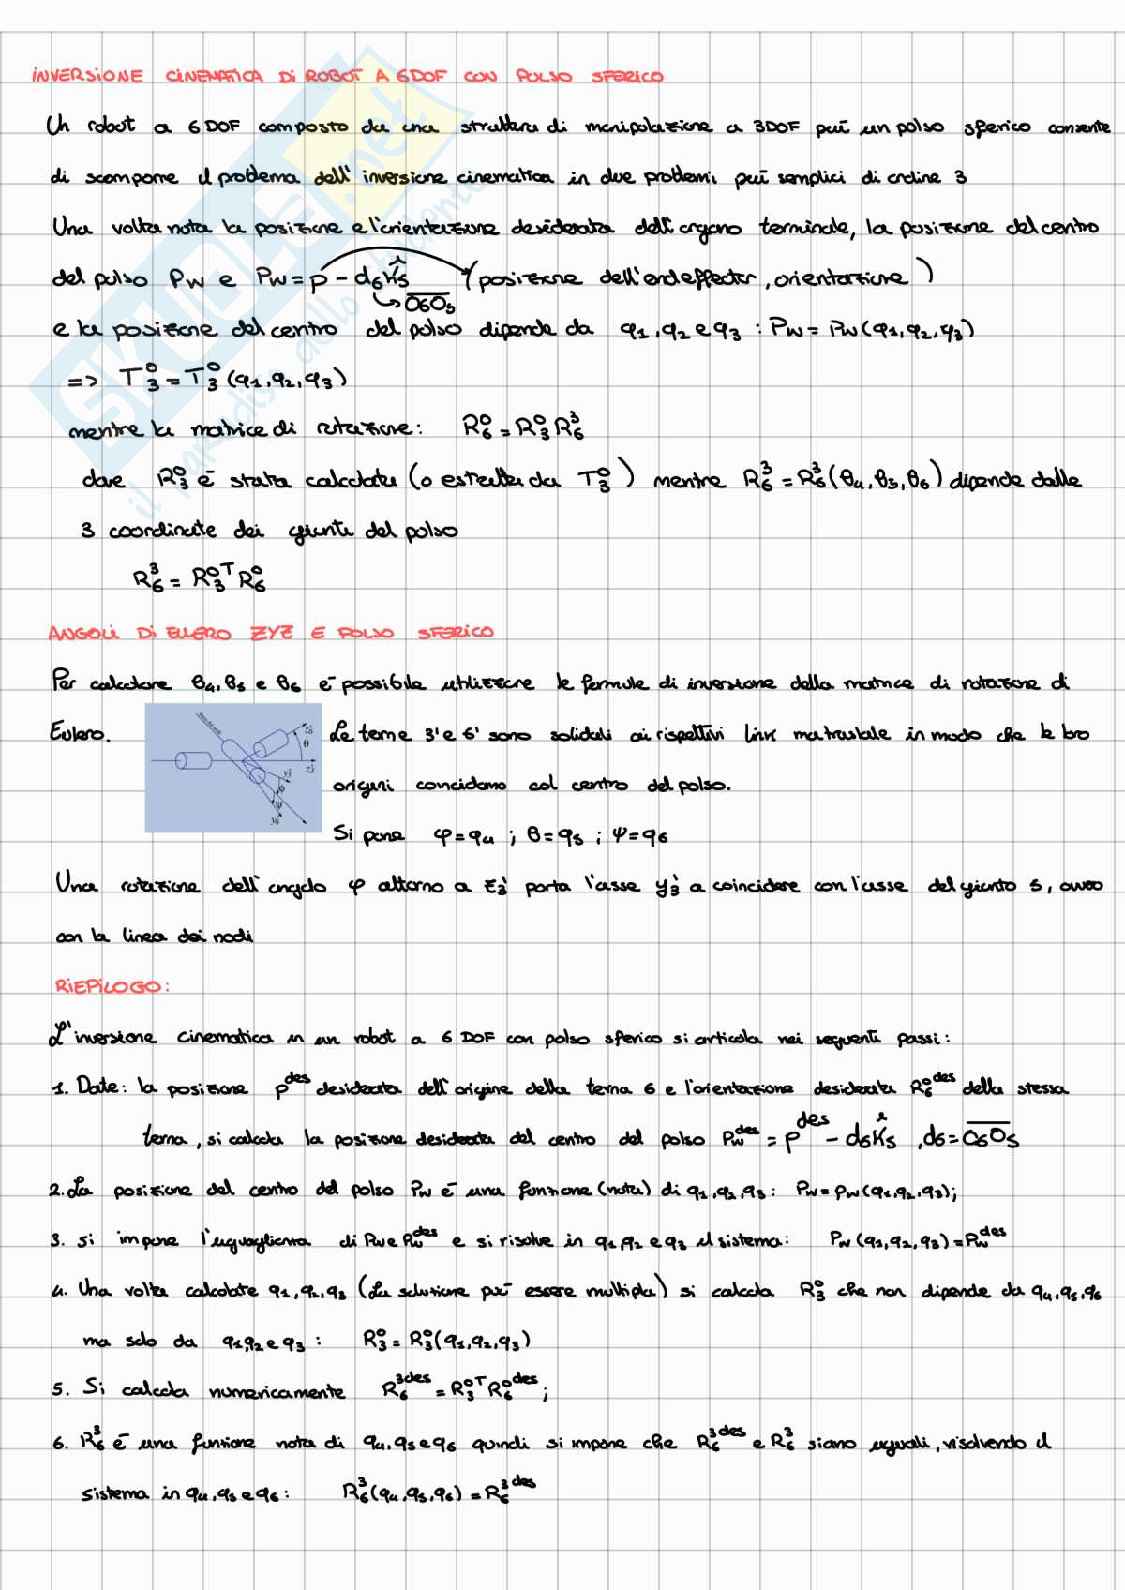 INVERSIONE CINEMATICA DI ROBOT A 6DOF CON POLSO SFERICO
Un robot a 6DOF composto da una struttura di manipolazione a 3DOF più un polso sferico consente
di scomporre il problema dell'inversione cinematica in due problemi più semplici di ordine 3
Una volta nota la posizione e l'orientazione desiderata dell'organo terminale, la posizione del centro
del polso Pw è Pw = p - d6 k̂5 (posizione dell'endeffector, orientazione)
↳ O6O5
e la posizione del centro del polso dipende da q1, q2 e q3 : Pw = Pw(q1, q2, q3)
=> T⁰₃ = T⁰₃ (q1, q2, q3)
mentre la matrice di rotazione: R⁰₆ = R⁰₃ R³₆
dove R⁰₃ è stata calcolata (o estratta da T⁰₃) mentre R³₆ = R³₆ (θ4, θ5, θ6) dipende dalle
3 coordinate dei giunti del polso
R³₆ = R⁰₃ᵀ R⁰₆
ANGOLI DI EULERO ZYZ E POLSO SFERICO
Per calcolare θ4, θ5 e θ6 è possibile utilizzare le formule di inversione della matrice di rotazione di
Eulero. Le terne 3' e 6' sono solidali ai rispettivi link ma traslate in modo che le loro
origini coincidano col centro del polso.
Si pone φ = q4 ; θ = q5 ; ψ = q6
Una rotazione dell'angolo φ attorno a z3' porta l'asse y3' a coincidere con l'asse del giunto 5, ovvero
con la linea dei nodi
RIEPILOGO:
L'inversione cinematica in un robot a 6 DOF con polso sferico si articola nei seguenti passi:
1. Date: la posizione p^des desiderata dell'origine della terna 6 e l'orientazione desiderata R⁰₆^des della stessa
terna, si calcola la posizione desiderata del centro del polso Pw^des = p^des - d6 k̂5 , d6 = O6O5
2. La posizione del centro del polso Pw è una funzione (nota) di q1, q2, q3: Pw = Pw(q1, q2, q3);
3. Si impone l'uguaglianza di Pw e Pw^des e si risolve in q1 q2 e q3 il sistema: Pw (q1, q2, q3) = Pw^des
4. Una volta calcolate q1, q2, q3 (La soluzione può essere multipla) si calcola R⁰₃ che non dipende da q4, q5, q6
ma solo da q1, q2 e q3 : R⁰₃ = R⁰₃ (q1, q2, q3)
5. Si calcola numericamente R³₆^des = R⁰₃ᵀ R⁰₆^des ;
6. R³₆ è una funzione nota di q4, q5 e q6 quindi si impone che R³₆^des e R³₆ siano uguali, risolvendo il
sistema in q4, q5 e q6 : R³₆ (q4, q5, q6) = R³₆^des